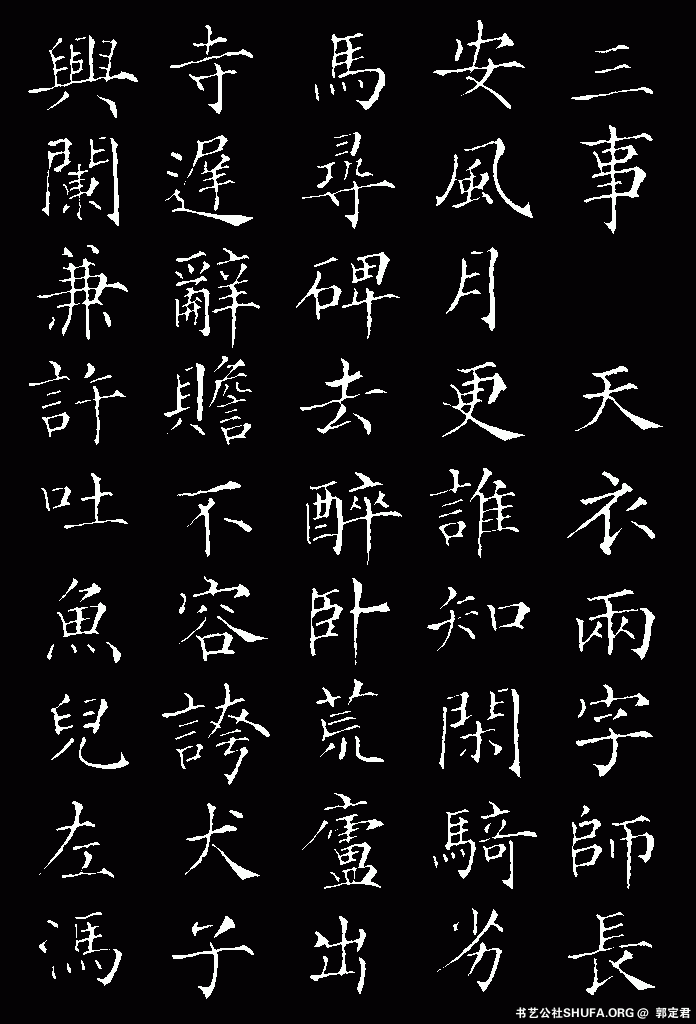 三事　天衣兩字師長
安風月更誰知閑騎劣
馬尋碑去醉卧荒廬出
寺遲辭贍不容誇犬子
興闌兼許吐魚兒左馮
书艺公社SHUFA.ORG @ 郭定君